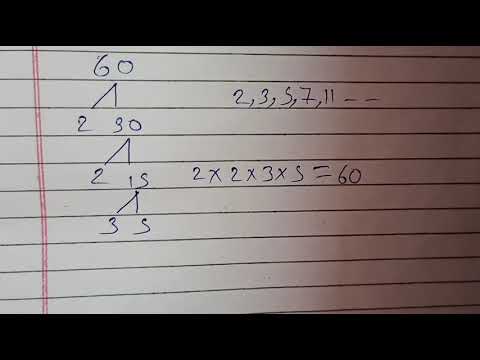 60
2, 3, 5, 7, 11 - -
2 30
2 15
2 × 2 × 3 × 5 = 60
3 5